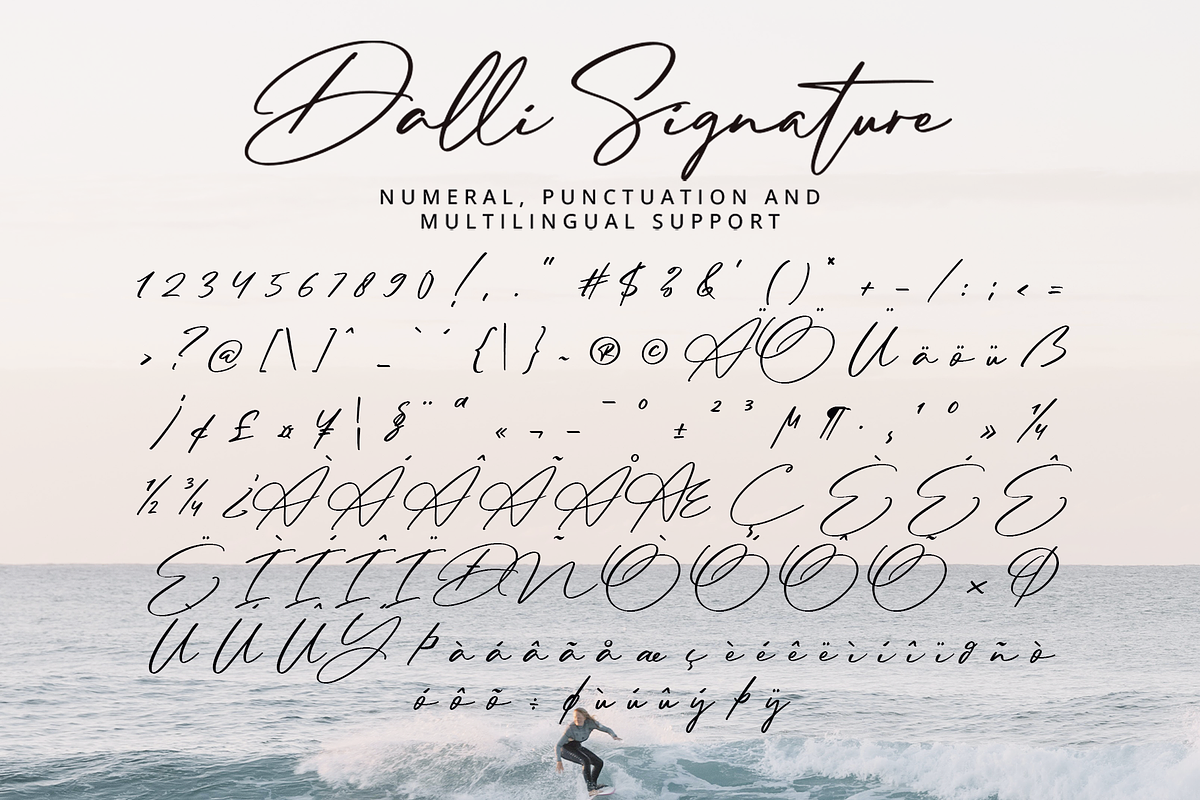 Dalli Signature
NUMERAL, PUNCTUATION AND
MULTILINGUAL SUPPORT
1 2 3 4 5 6 7 8 9 0 ! , . " # $ % & ' ( ) * + - / : ; < =
> ? @ [ \ ] ^ _ ` ´ { | } ~ ® © Ä Ö Ü ä ö ü ß
¡ ¢ £ ¤ ¥ ¦ § ¨ ª « ¬ - ¯ º ± ² ³ µ ¶ · ¸ ¹ º » ¼
½ ¾ ¿ À Á Â Ã Å Æ Ç È É Ê
Ë Ì Í Î Ï Ð Ñ Ò Ó Ô Õ × Ø
Ù Ú Û Ý Þ à á â ã å æ ç è é ê ë ì í î ï ð ñ ò
ó ô õ ÷ ø ù ú û ý þ ÿ